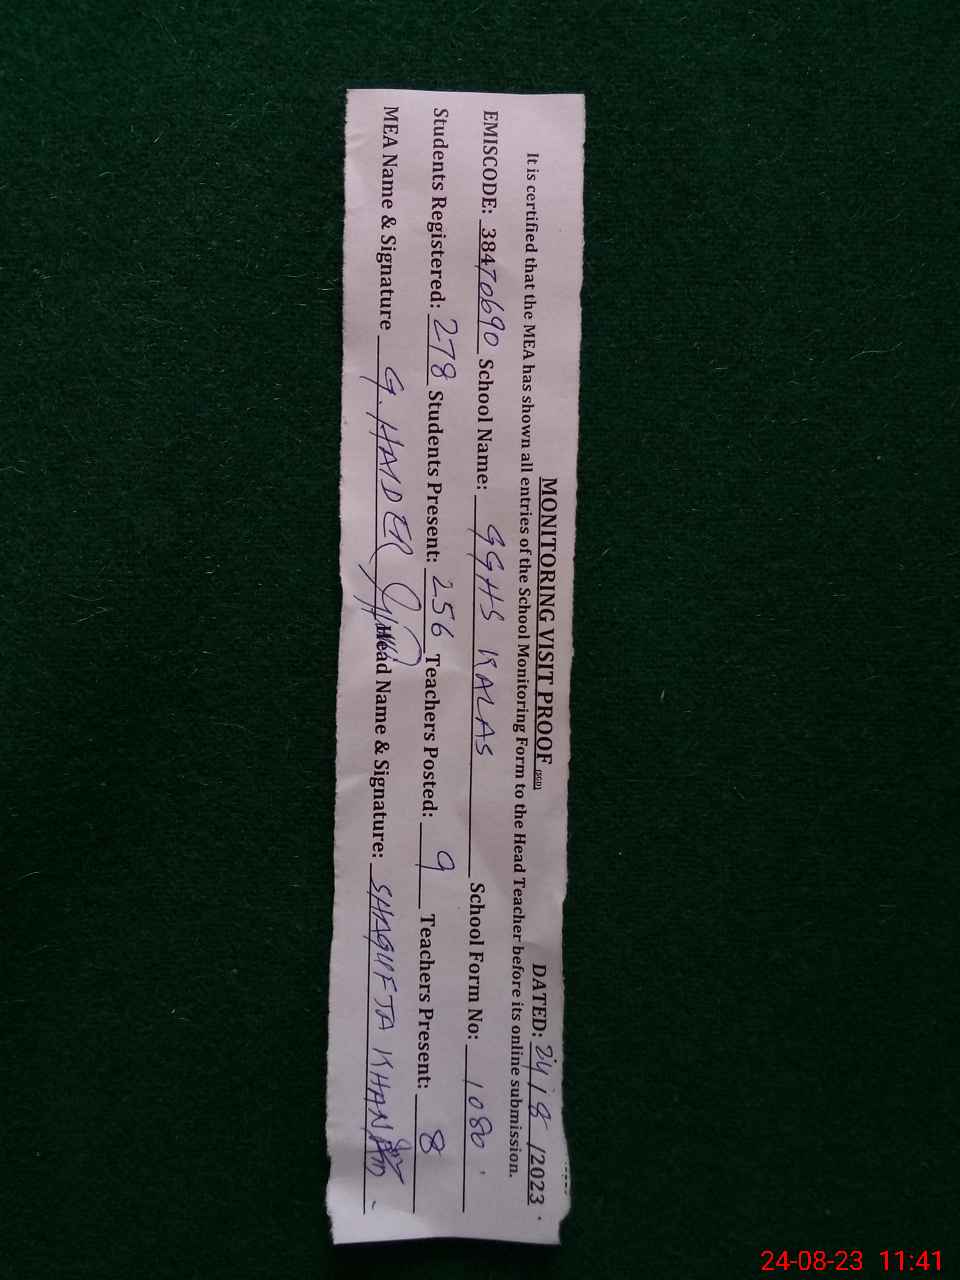 MONITORING VISIT PROOF (SGD) DATED: 24/8/2023
It is certified that the MEA has shown all entries of the School Monitoring Form to the Head Teacher before its online submission.
EMISCODE: 38470690 School Name: GGHS KALAS School Form No: 1080
Students Registered: 278 Students Present: 256 Teachers Posted: 9 Teachers Present: 8
MEA Name & Signature G. HAIDER Head Name & Signature: SHAGUFTA KHANAM
24-08-23 11:41